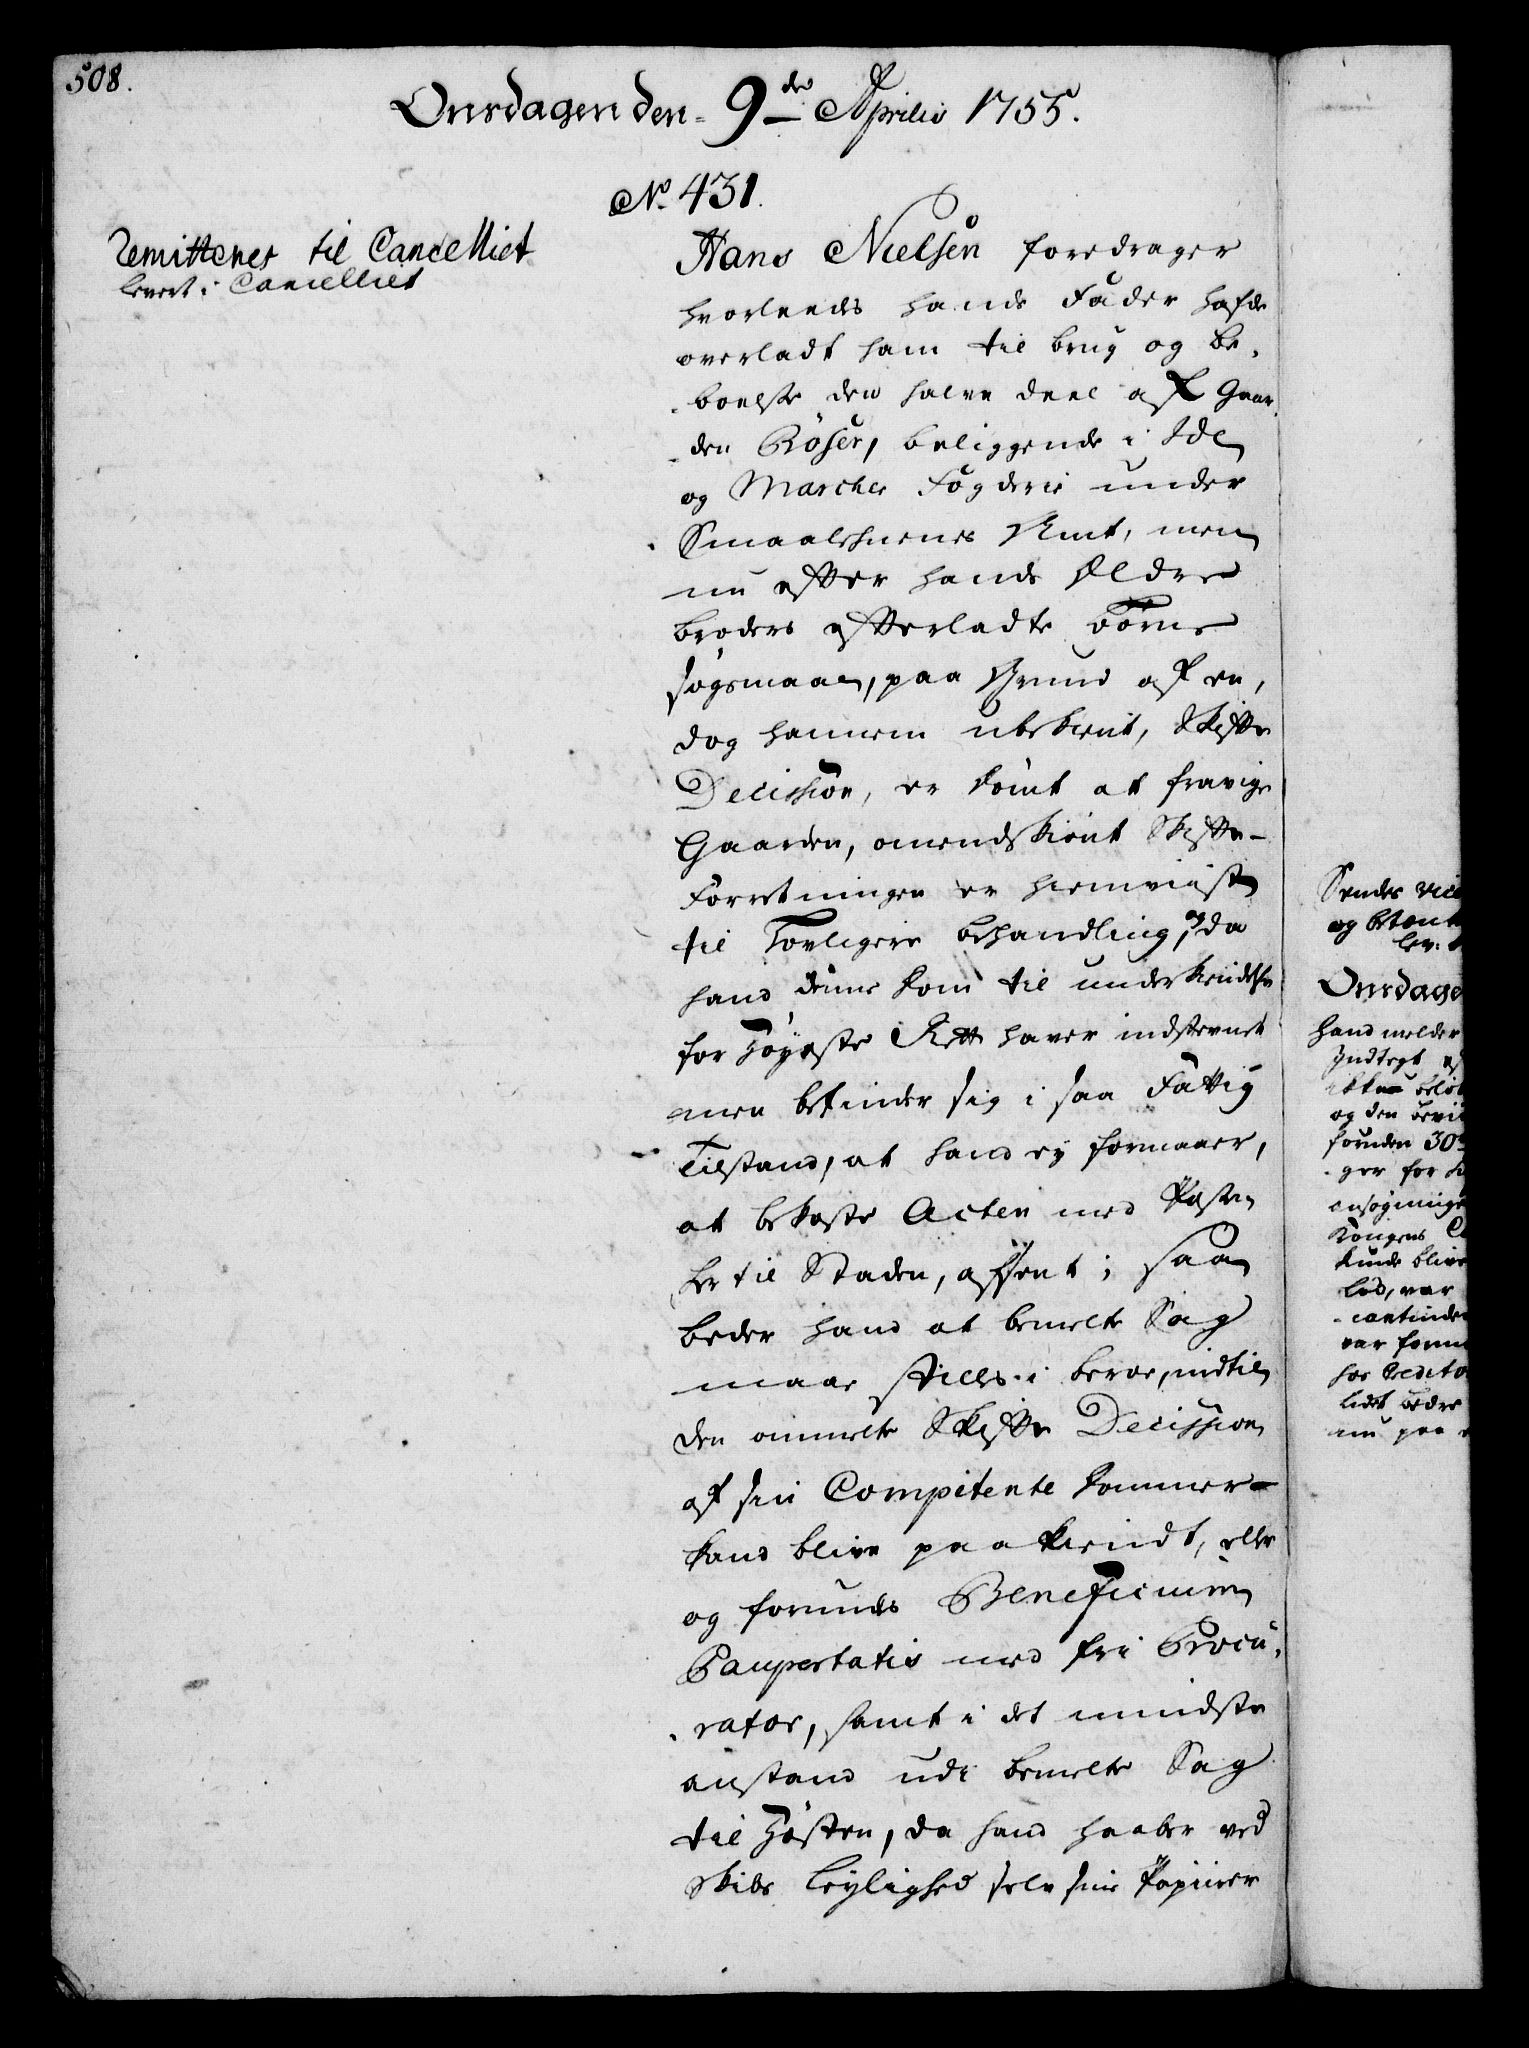 508.
Onsdagen den 9de Aprilis 1755.
No. 431.
Remitteres til Cancelliet
levert i Cancelliet
Hans Nielsen foredrager
hvorleeds hands Fader hafde
overladt ham til brug og be-
-boelse den halve deel af Gaar-
-den Röser, beliggende i Ide
og Marcher Fögderie under
Smaalehnenes Amt, men
nu efter hands Eldre
broders efterladte börns
søgsmaal, paa Grund af en,
dog hannem ubekient, Skifte
Decission, er dømt at fravige
Gaarden, omendskiönt Skifte-
Forretningen er hiemviist
til Lovligere behandling, og da
hand denne dom til underkiendelse
for Høyeste Rett haver indstevnet
men befinder sig i saa Fattig
Tilstand, at hand ey formaaer,
at bekoste Acten med Posten
her til Staden, afsent; saa
beder hand at bemelte Sag
maae stilles i beroe, indtil
den ommelte Skifte Decission
af sin Compitente dommer
kand blive paakiendt, eller
og forundes Beneficium
Paupertatis med fri Procu-
-rator, samt i det mindste
anstand udi bemelte Sag
til Høsten, da hand haaber ved
Skibs Leylighed selv sine Papiirer
Sendes
og betænk
lev:
Onsdage
hand melder
Indtegt
og den
foruden 30
-ger for
ansøgninge
Kongens
kunde blive
löd, var
var
hos Credito
lidet bedre
nu paa